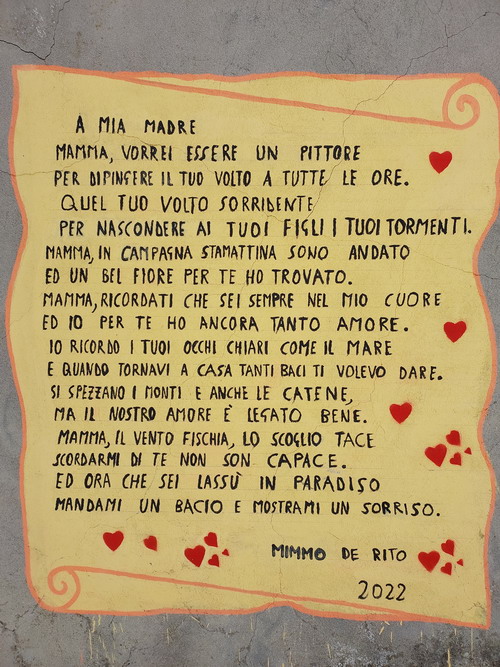 A MIA MADRE
MAMMA, VORREI ESSERE UN PITTORE
PER DIPINGERE IL TUO VOLTO A TUTTE LE ORE.
QUEL TUO VOLTO SORRIDENTE
PER NASCONDERE AI TUOI FIGLI I TUOI TORMENTI.
MAMMA, IN CAMPAGNA STAMATTINA SONO ANDATO
ED UN BEL FIORE PER TE HO TROVATO.
MAMMA, RICORDATI CHE SEI SEMPRE NEL MIO CUORE
ED IO PER TE HO ANCORA TANTO AMORE.
IO RICORDO I TUOI OCCHI CHIARI COME IL MARE
E QUANDO TORNAVI A CASA TANTI BACI TI VOLEVO DARE.
SI SPEZZANO I MONTI E ANCHE LE CATENE,
MA IL NOSTRO AMORE È LEGATO BENE.
MAMMA, IL VENTO FISCHIA, LO SCOGLIO TACE
SCORDARMI DI TE NON SON CAPACE.
ED ORA CHE SEI LASSÙ IN PARADISO
MANDAMI UN BACIO E MOSTRAMI UN SORRISO.
MIMMO DE RITO
2022